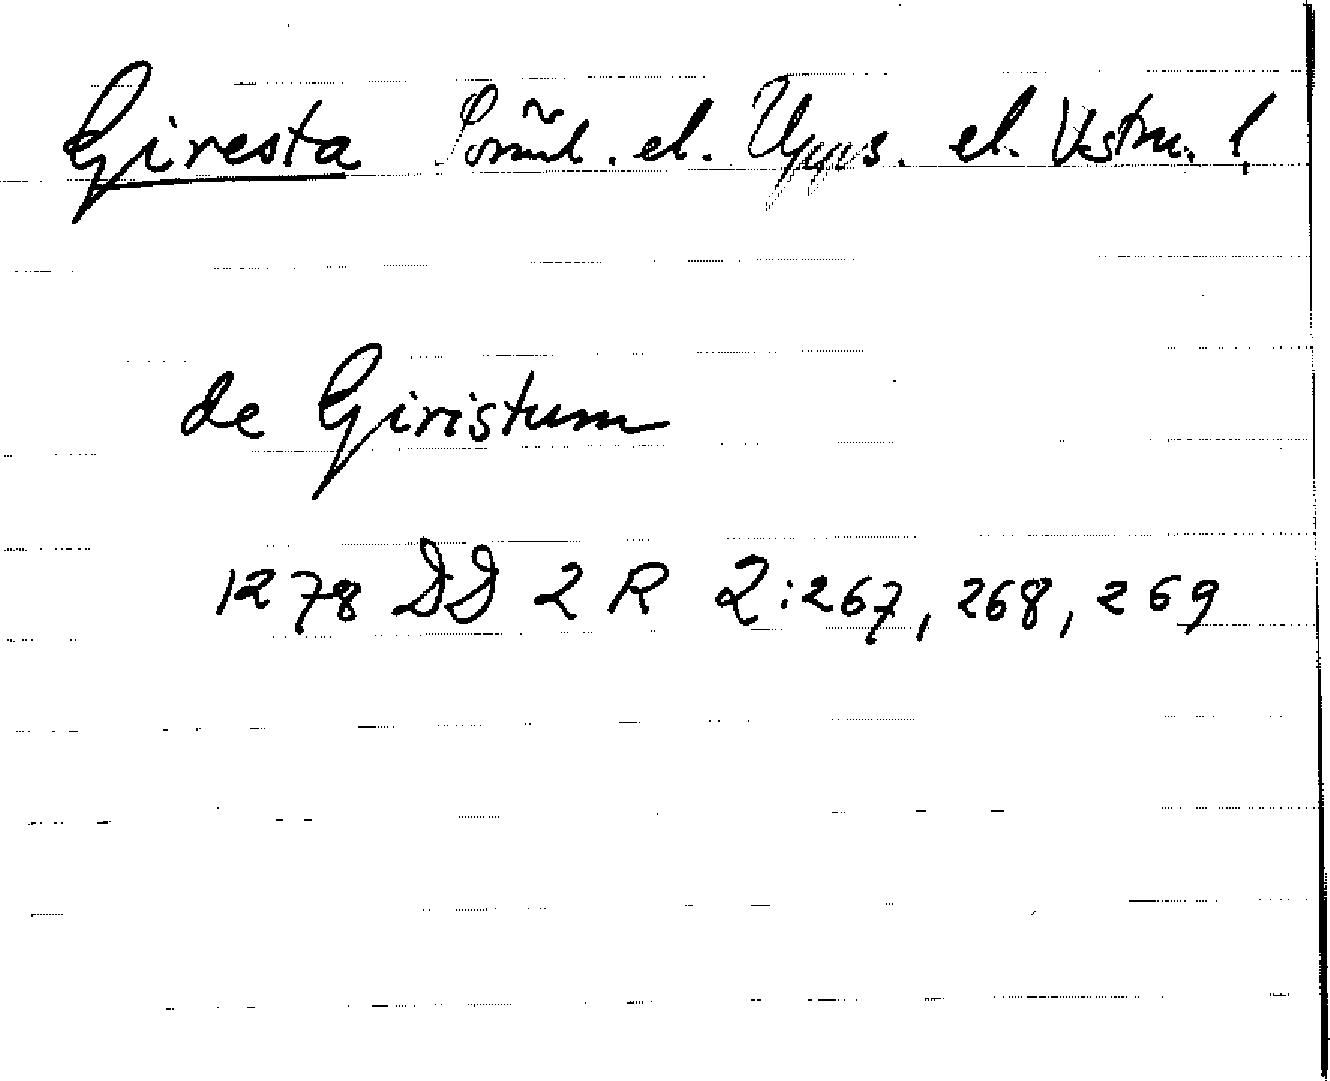 Giresta Söml. el. Upps. el. Vstm. l.
de Giristum
1278 DD 2 R 2:267, 268, 269